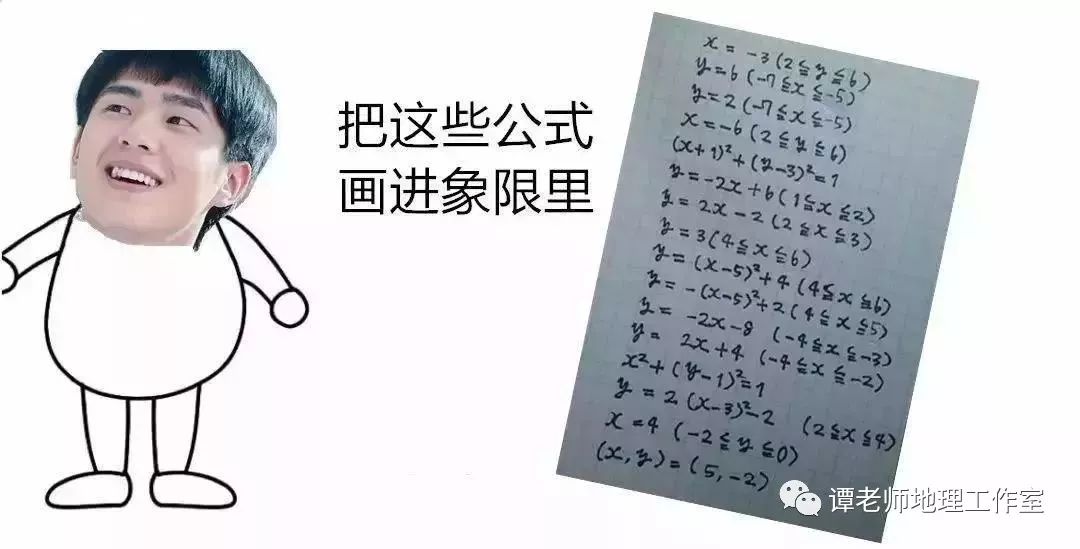 把这些公式
画进象限里
x = -3 (2≦y≦6)
y=6 (-7≦x≦-5)
y=2 (-7≦x≦-5)
x=-6 (2≦y≦6)
(x+1)²+(y-3)²=1
y=-2x+6 (1≦x≦2)
y=2x-2 (2≦x≦3)
y=3(4≦x≦6)
y=(x-5)²+4 (4≦x≦6)
y=-(x-5)²+2(4≦x≦5)
y= -2x-8 (-4≦x≦-3)
y= 2x+4 (-4≦x≦-2)
x²+(y-1)²=1
y=2(x-3)²-2 (2≦x≦4)
x=4 (-2≦y≦0)
(x,y)=(5,-2)
谭老师地理工作室